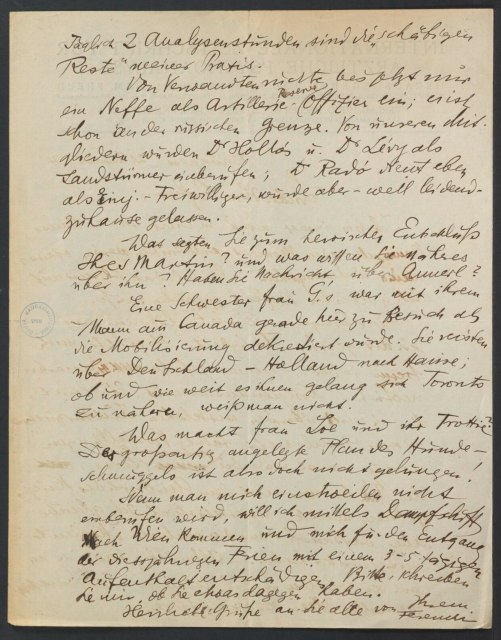 Täglich 2 Analysenstunden sind die „schäbigen
Reste" meiner Praxis.
Von Verwandten rückte bis jetzt nur
ein Neffe als Artillerie Reserve Offizier ein; er ist
schon an der russischen Grenze. Von unseren Mit-
gliedern wurden Dr Hollós u. Dr Lévy als
Landstürmer einberufen; Dr Radó dient eben
als Einj.-Freiwilliger, wurde aber – weil leidend –
zuhause gelassen.
Was sagten Sie zum heroischen Entschluß
Ihres Martin? und was wissen Sie näheres
über ihn? Haben Sie Nachricht über Annerl?
Eine Schwester Frau G.'s war mit ihrem
Mann aus Canada gerade hier zu Besuch als
die Mobilisierung dekretiert wurde. Sie reisten
über Deutschland – Holland nach Hause;
ob und wie weit es ihnen gelang sich Toronto
zu nähern, weiß man nicht.
Was macht Frau Loe und ihr Trottie?
Der großartig angelegte Plan des Hunde-
schmuggels ist also doch nicht gelungen!
Wenn man mich einstweilen nicht
einberufen wird, will ich mittels Dampfschiff
nach Wien kommen und mich für den Entgang
der diesjährigen Ferien mit einem 3-5 tägigen
Aufenthalt entschädigen. Bitte, schreiben
Sie mir, ob Sie etwas dagegen haben.
Herzliche Grüße an Sie alle von Ihrem
Ferenczi